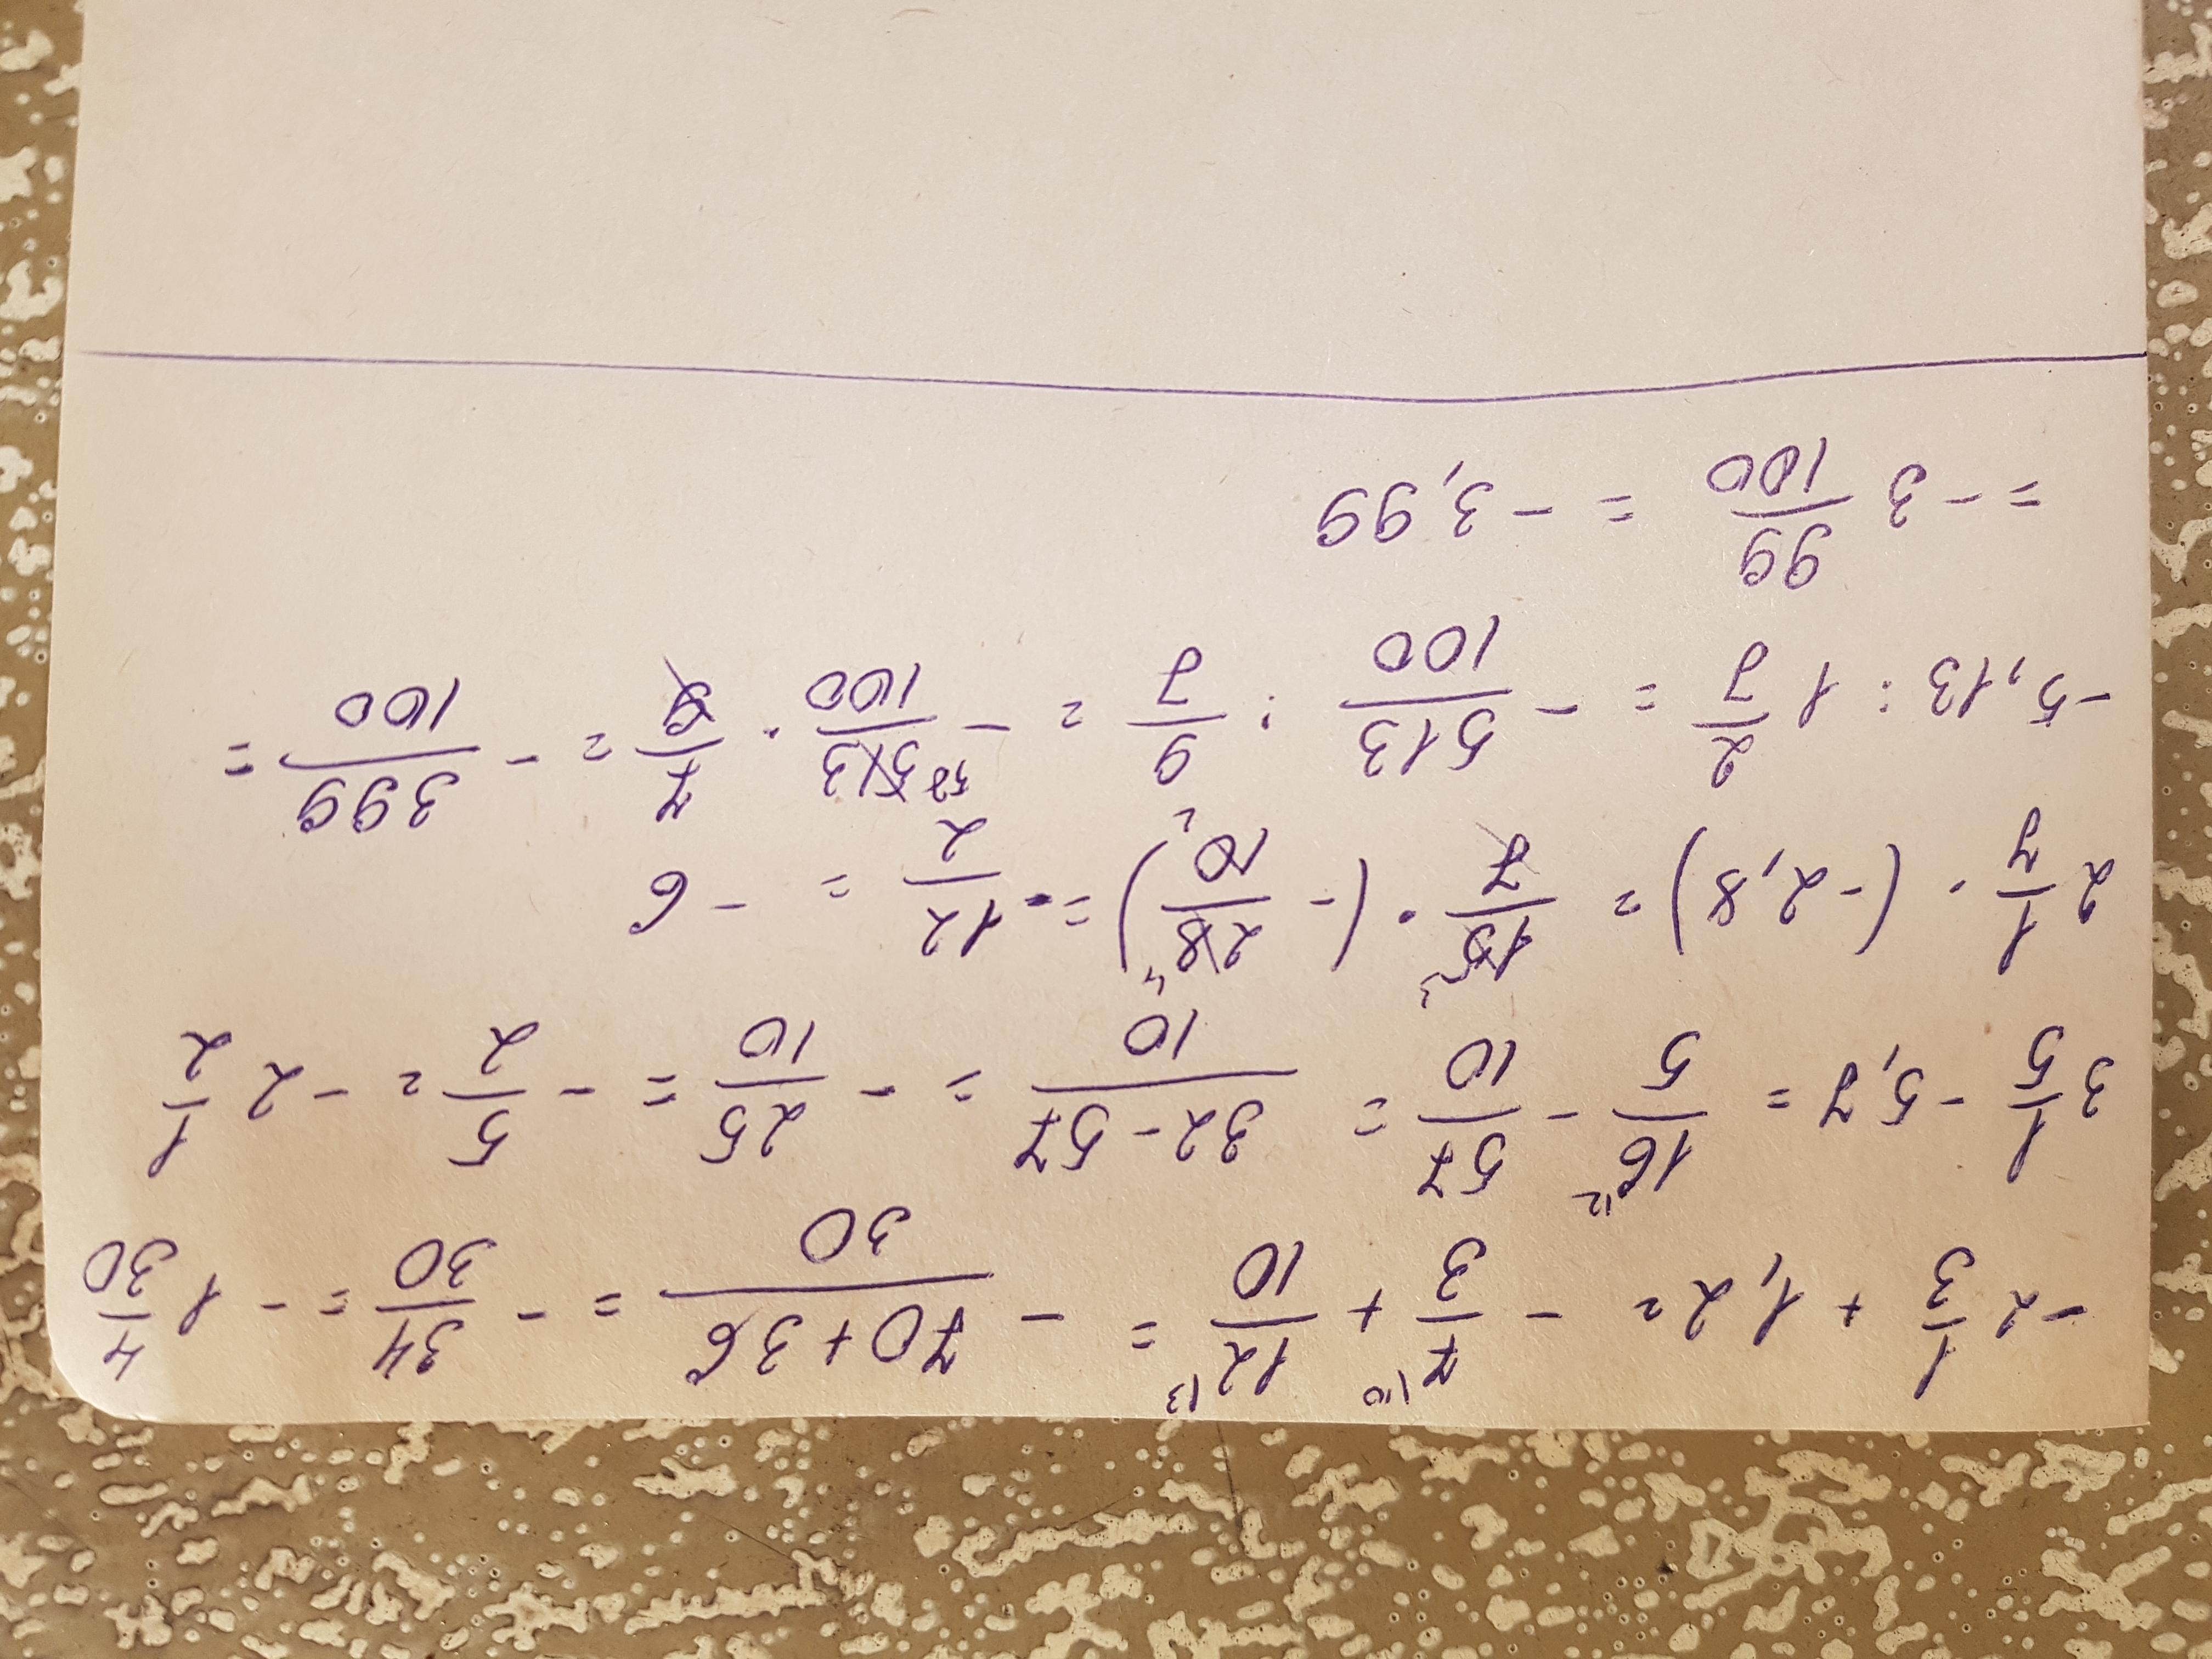 -2 1/3 + 1,2 = - 7/3^10 + 12/10^13 = - 70+36/30 = - 34/30 = - 1 4/30
3 1/5 - 5,7 = 16/5^12 - 57/10 = 32-57/10 = - 25/10 = - 5/2 = - 2 1/2
2 1/7 · (-2,8) = 15^3/7 · (- 28^4/10_2) = - 12/2 = - 6
-5,13 : 1 2/7 = - 513/100 : 9/7 = - 57 513/100 · 7/9 = - 399/100 =
= - 3 99/100 = - 3,99